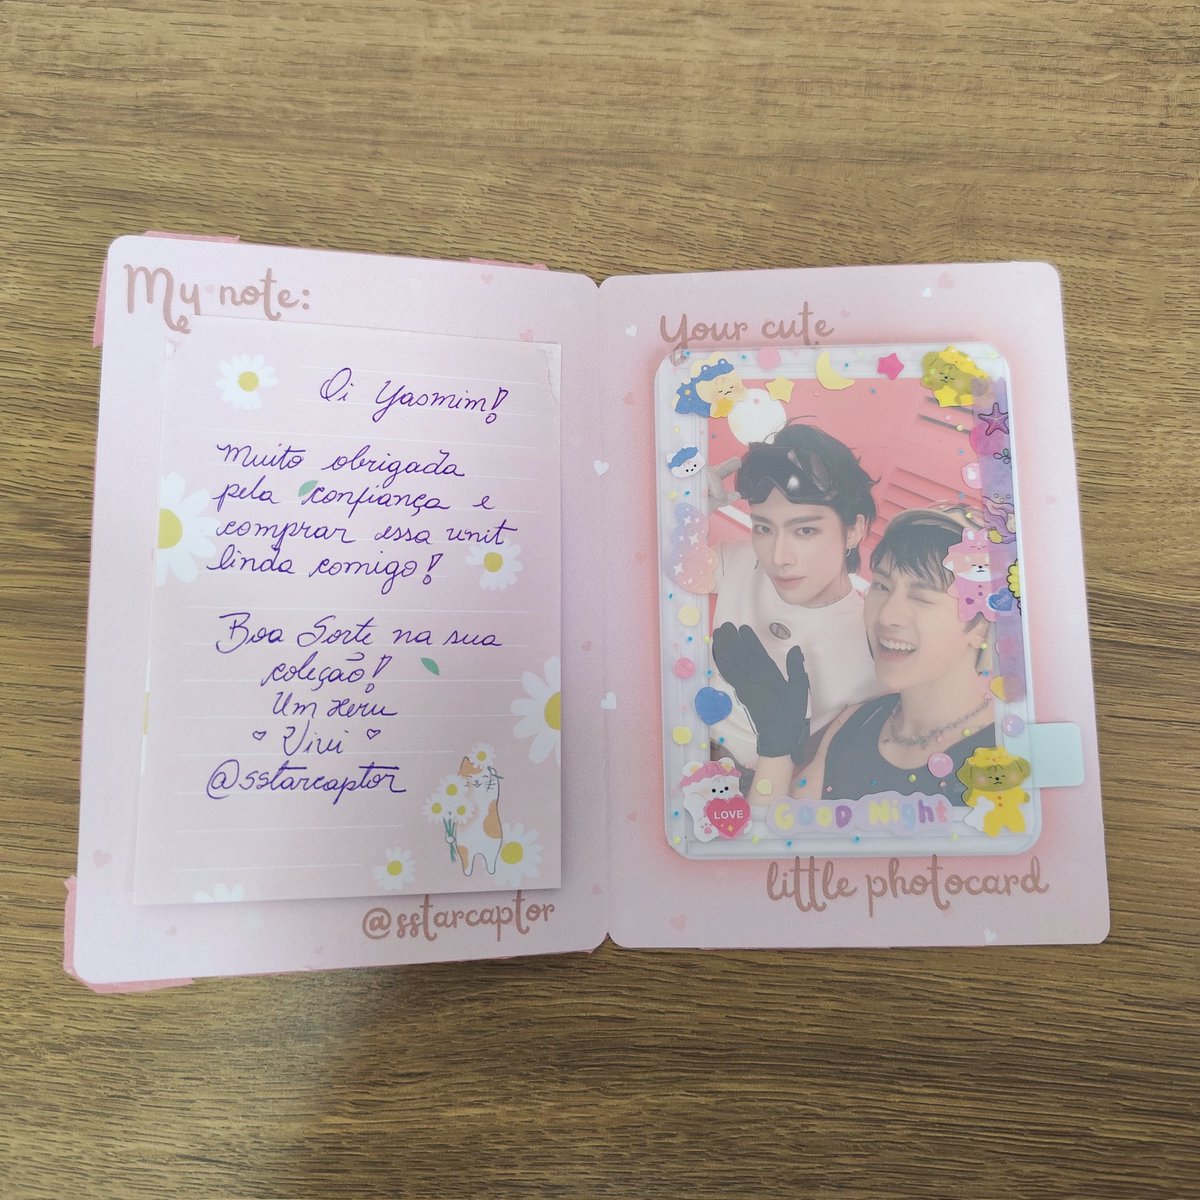 My note:
Oi Yasmim!
Muito obrigada
pela confiança e
comprar essa unit
linda comigo!
Boa Sorte na sua
coleção!
Um xeru
Vivi
@sstarcaptor
@sstarcaptor
Your cute
LOVE
GOOD Night
little photocard